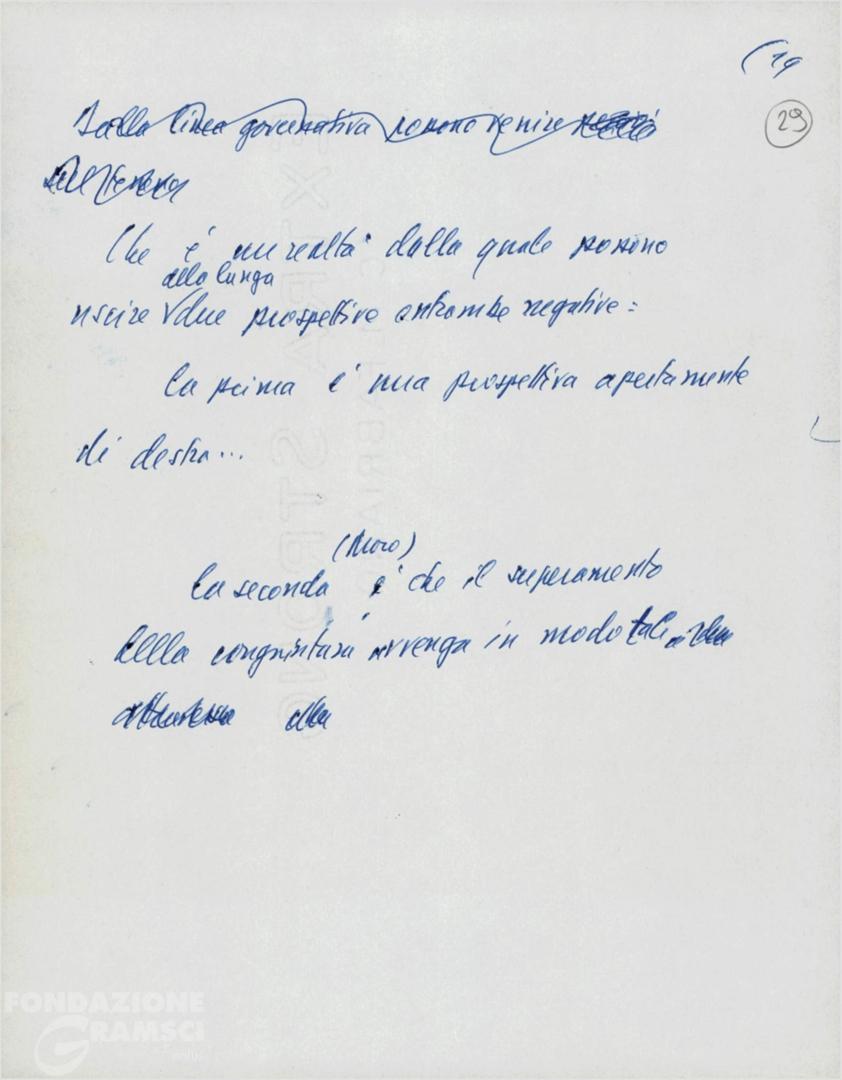 (19
29
Dalla linea governativa possono venire
Che è un realtà dalla quale possono
alla lunga
uscire due prospettive entrambe negative:
la prima è una prospettiva apertamente
di destra...
(Moro)
la seconda è che il superamento
della congiuntura avvenga in modo tale
attraverso
FONDAZIONE
GRAMSCI